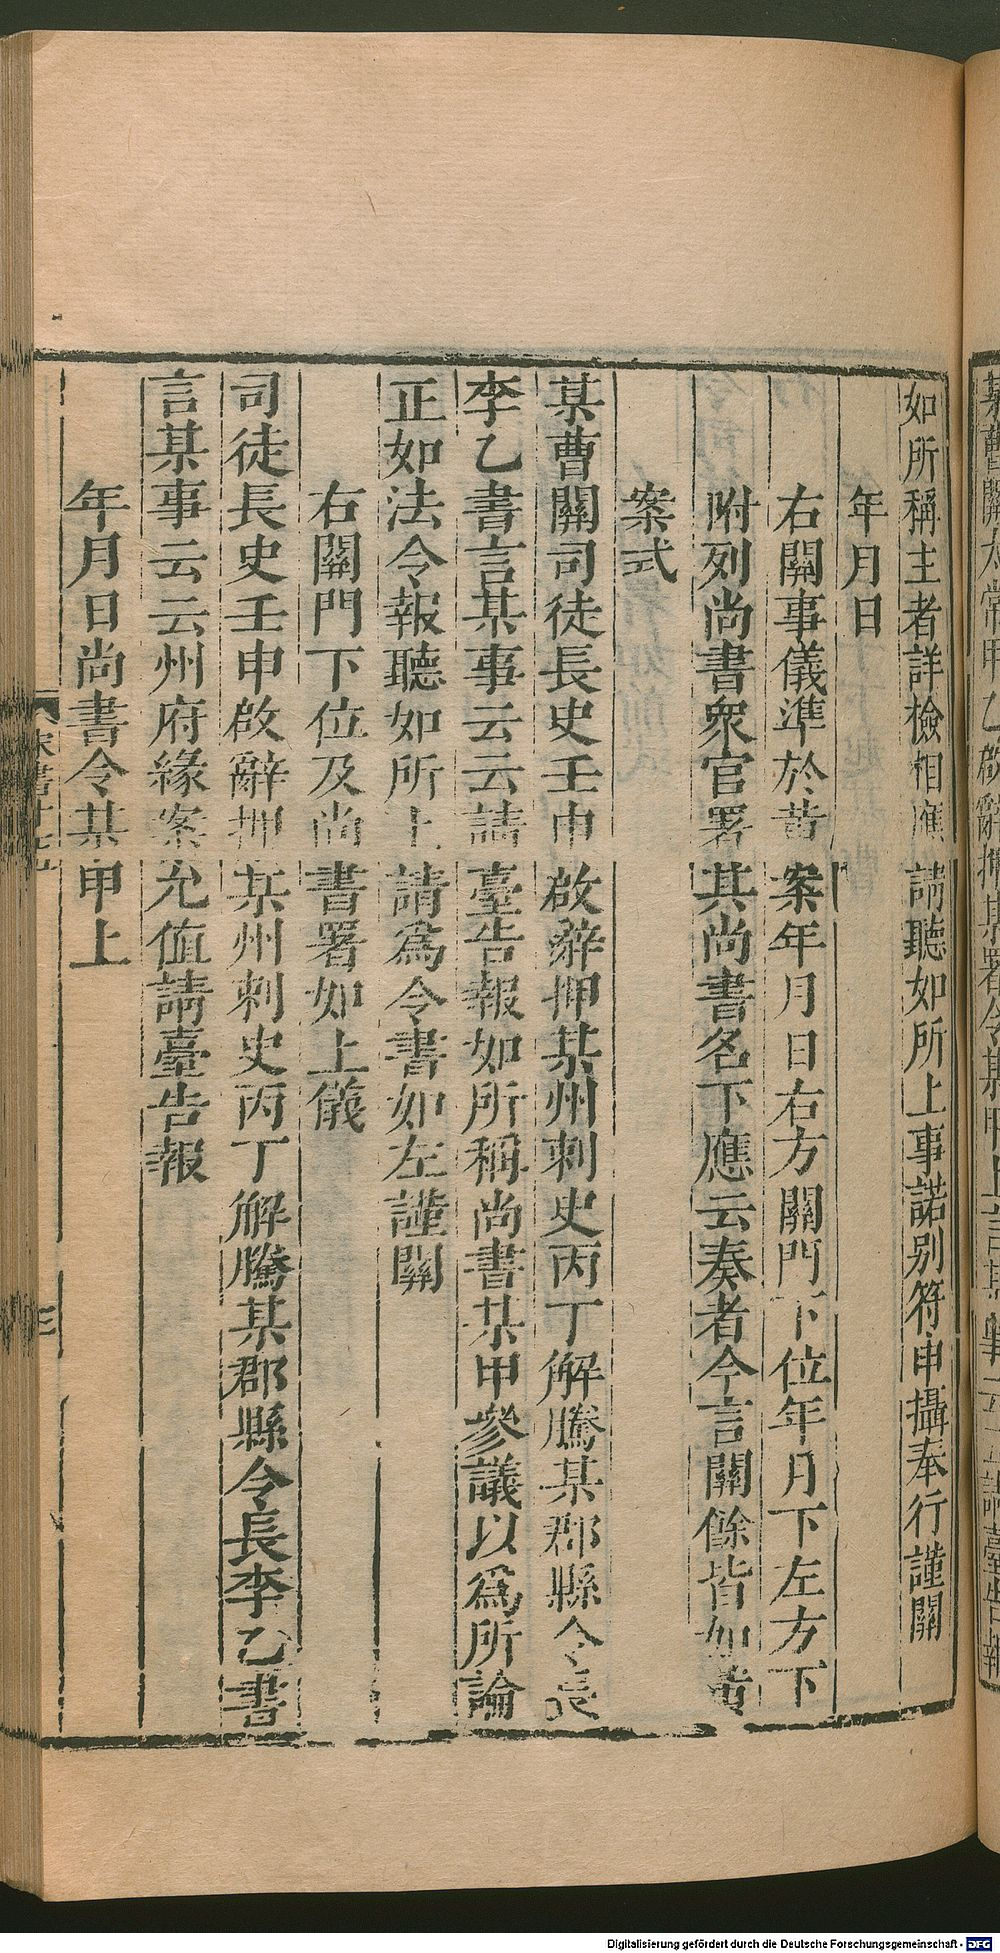 如所稱主者詳檢相應請聽如所上事諾别符申攝奉行謹關
年月日
右關事儀準於黄案年月日右方關門下位年月下左方下
附列尚書衆官署其尚書名下應云奏者今言關餘皆如黄
案式
某曹關司徒長史王申啟辭押某州刺史丙丁解騰某郡縣令長
李乙書言某事云云請臺告報如所稱尚書某甲參議以爲所論
正如法令報聽如所上請爲令書如左謹關
右關門下位及尚書署如上儀
司徒長史王申啟辭押某州刺史丙丁解騰某郡縣令長李乙書
言某事云云州府緣案允值請臺告報
年月日尚書令某甲上
Digitalisierung gefördert durch die Deutsche Forschungsgemeinschaft - DFG